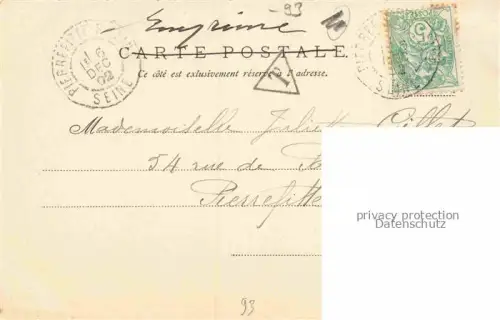 93
Imprimé
CARTE POSTALE
Ce côté est exclusivement réservé à l'adresse.
PIERREFITTE
6
DEC
02
SEINE
5
Mademoiselle Juliette
54 rue de
Pierrefitte
privacy protection
Datenschutz
93